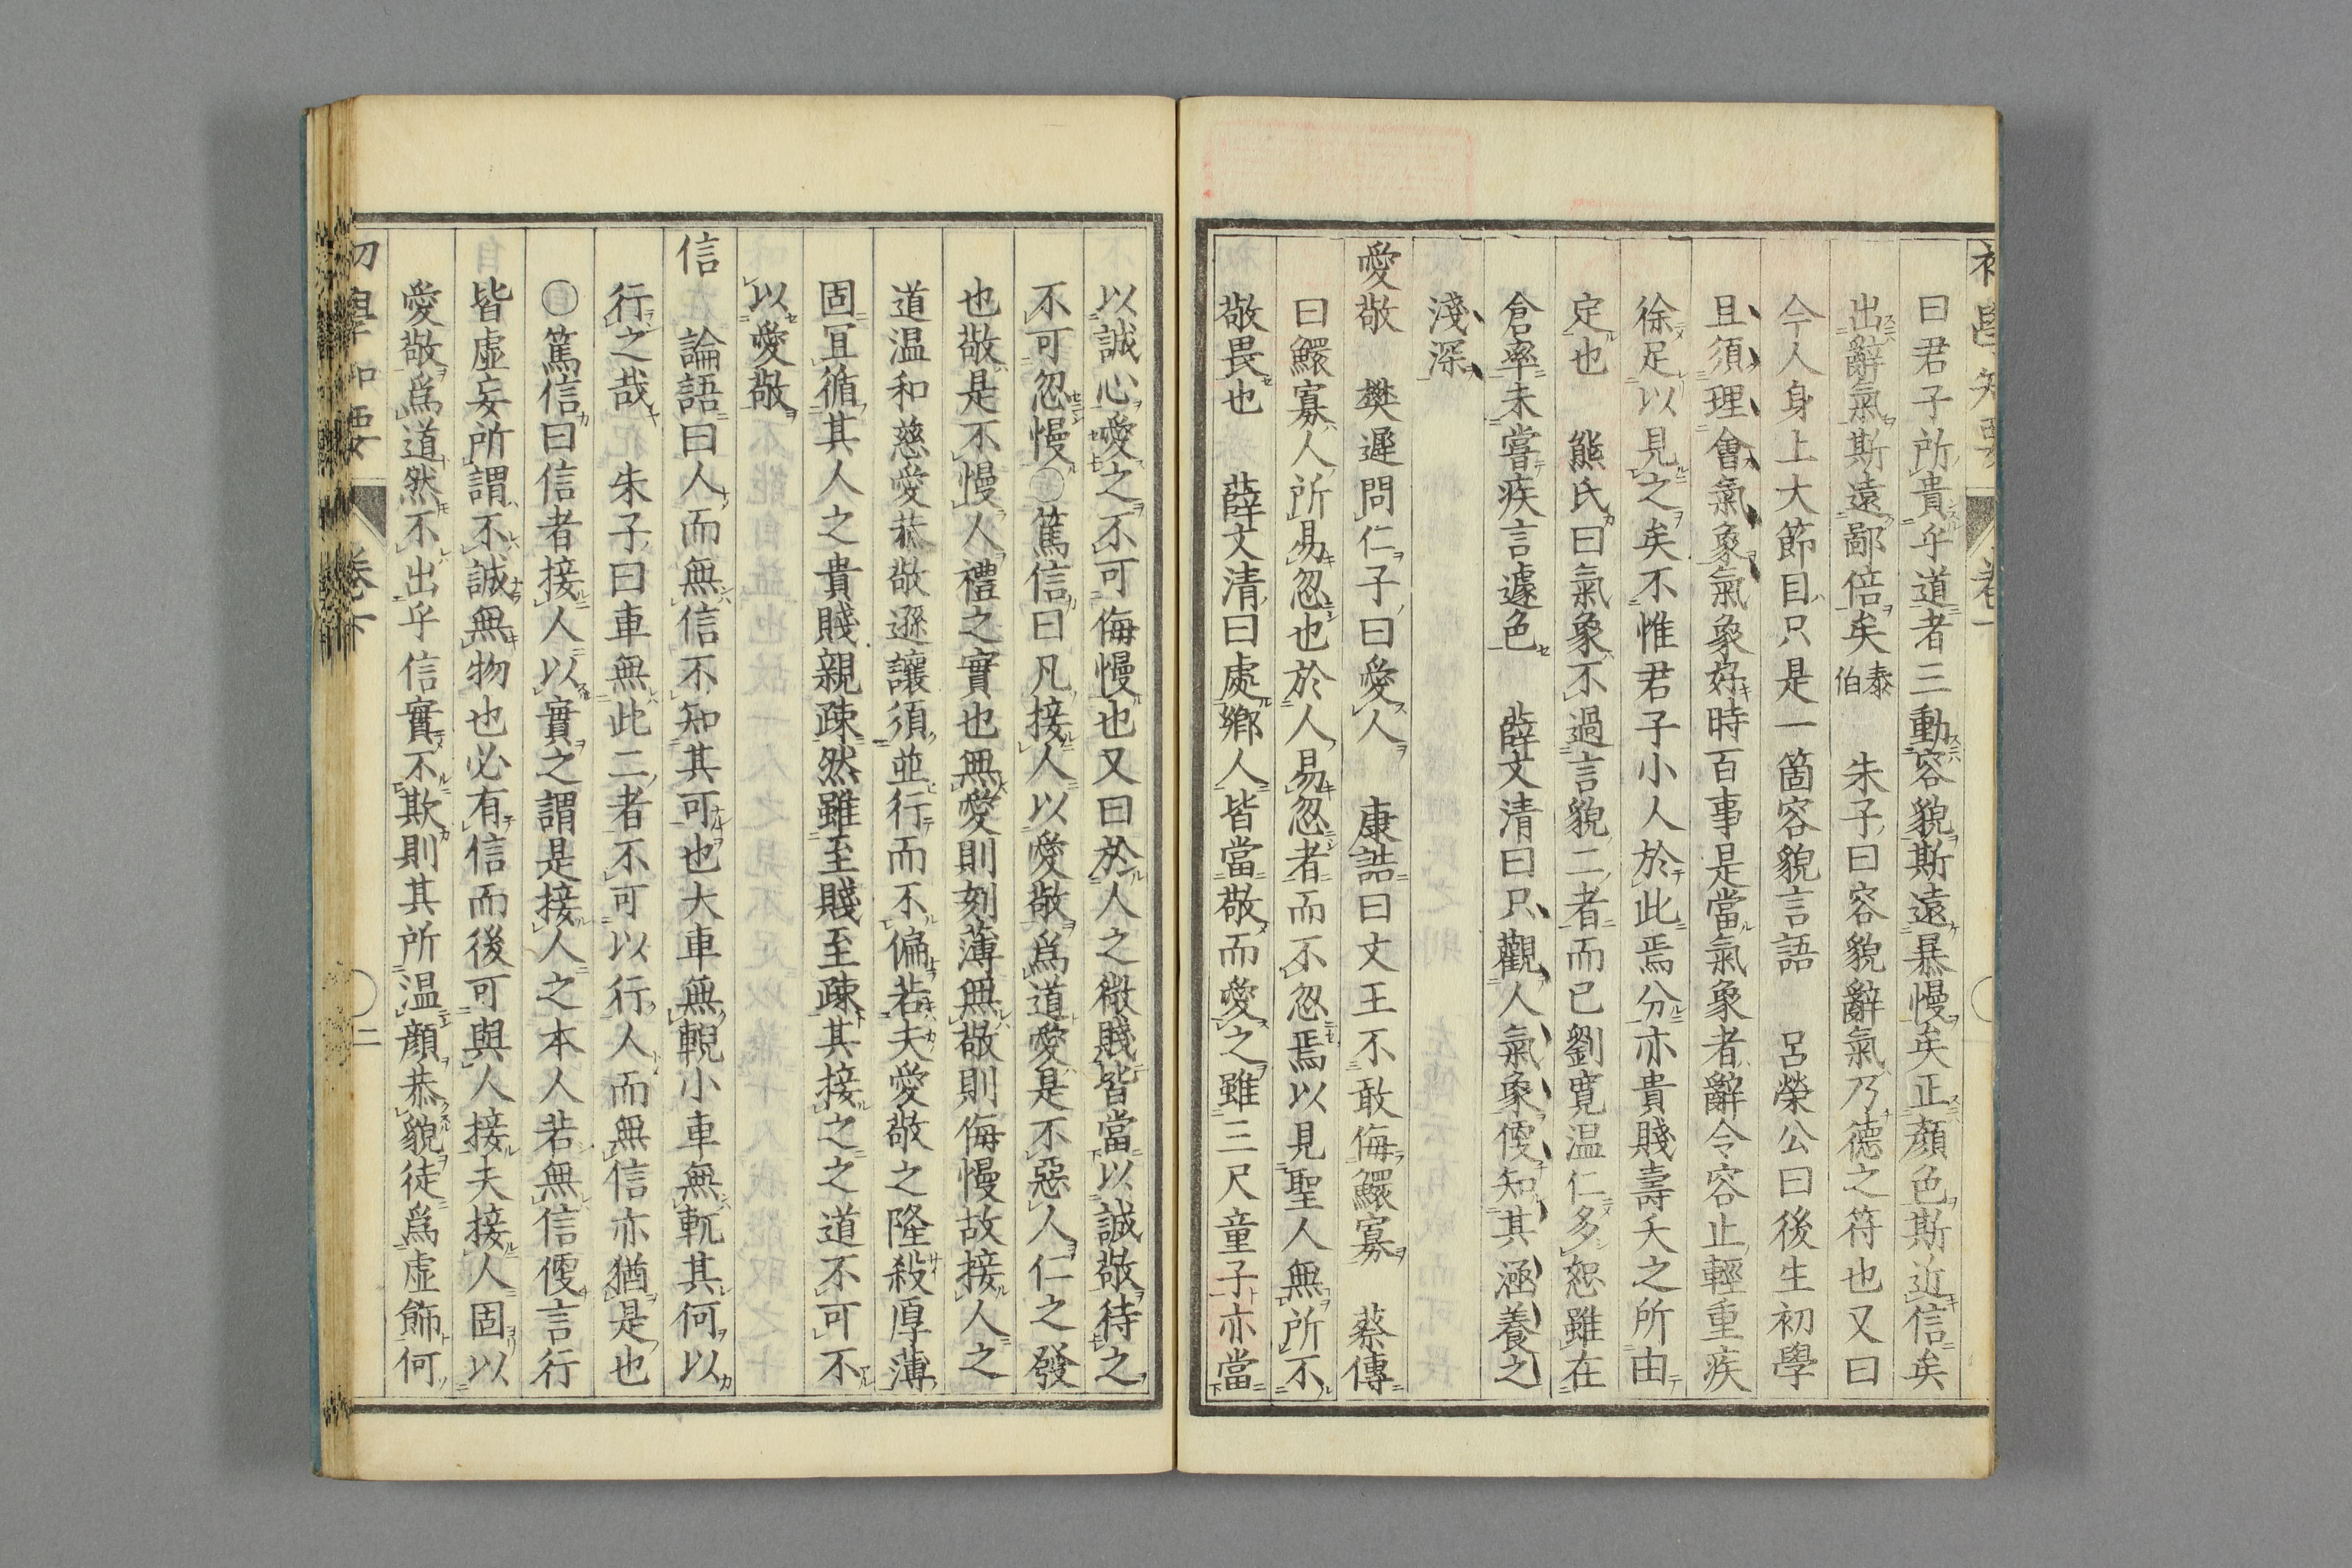 曰君子所貴乎道者三動容貌斯遠暴慢矣正顔色斯近信矣
出辭氣斯遠鄙倍矣泰伯　朱子曰容貌辭氣乃德之符也又曰
今人身上大節目只是一箇容貌言語　呂榮公曰後生初學
且須理會氣象氣象好時百事是當氣象者辭令容止輕重疾
徐足以見之矣不惟君子小人於此焉分亦貴賤壽夭之所由
定也　熊氏曰氣象不過言貌二者而已劉寛温仁多恕雖在
倉率未嘗疾言遽色　薛文清曰只觀人氣象便知其涵養之
淺深
愛敬　樊遲問仁子曰愛人　康誥曰文王不敢侮鰥寡　蔡傳
曰鰥寡人所易忽也於人易忽者而不忽焉以見聖人無所不
敬畏也　薛文清曰處鄉人皆當敬而愛之雖三尺童子亦當
以誠心愛之不可侮慢也又曰於人之微賤皆當以誠敬待之
不可忽慢〇篤信曰凡接人以愛敬爲道愛是不惡人仁之發
也敬是不慢人禮之實也無愛則刻薄無敬則侮慢故接人之
道温和慈愛恭敬遜讓須並行而不偏若夫愛敬之隆殺厚薄
固宜循其人之貴賤親疎然雖至賤至疎其接之之道不可不
以愛敬
信　論語曰人而無信不知其可也大車無輗小車無軏其何以
行之哉　朱子曰車無此二者不可以行人而無信亦猶是也
〇篤信曰信者接人以實之謂是接人之本人若無信便言行
皆虛妄所謂不誠無物也必有信而後可與人接夫接人固以
愛敬爲道然不出乎信實不欺則其所温顔恭貌徒爲虛飾何
初學知要　卷下　二